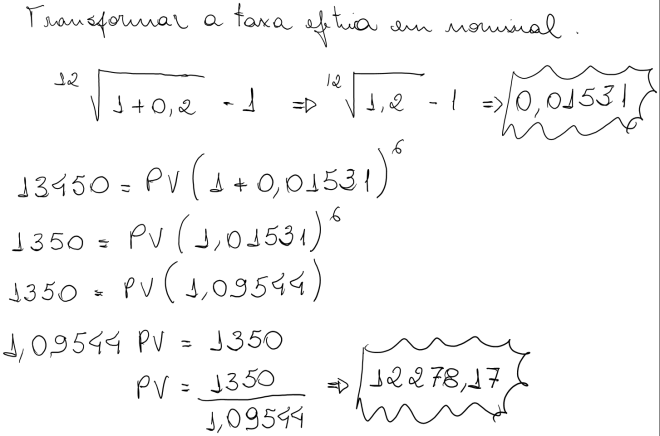 Transformar a taxa eftiva em nominal.
¹²√(1+0,2) - 1 ⇒ ¹²√(1,2) - 1 ⇒ 0,01531
13450 = PV(1 + 0,01531)⁶
1350 = PV(1,01531)⁶
1350 = PV(1,09544)
1,09544 PV = 1350
PV = 1350/1,09544 ⇒ 12278,17